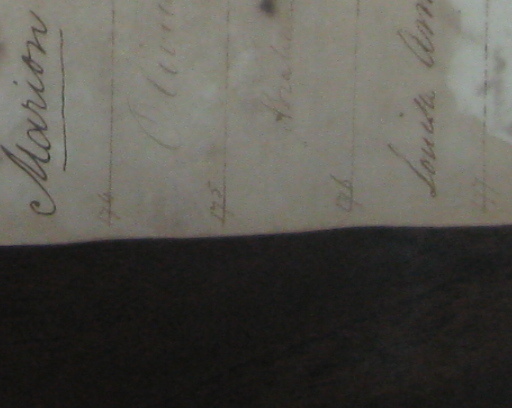 Marion
174
175
Abraham
176
Louisa Am
177